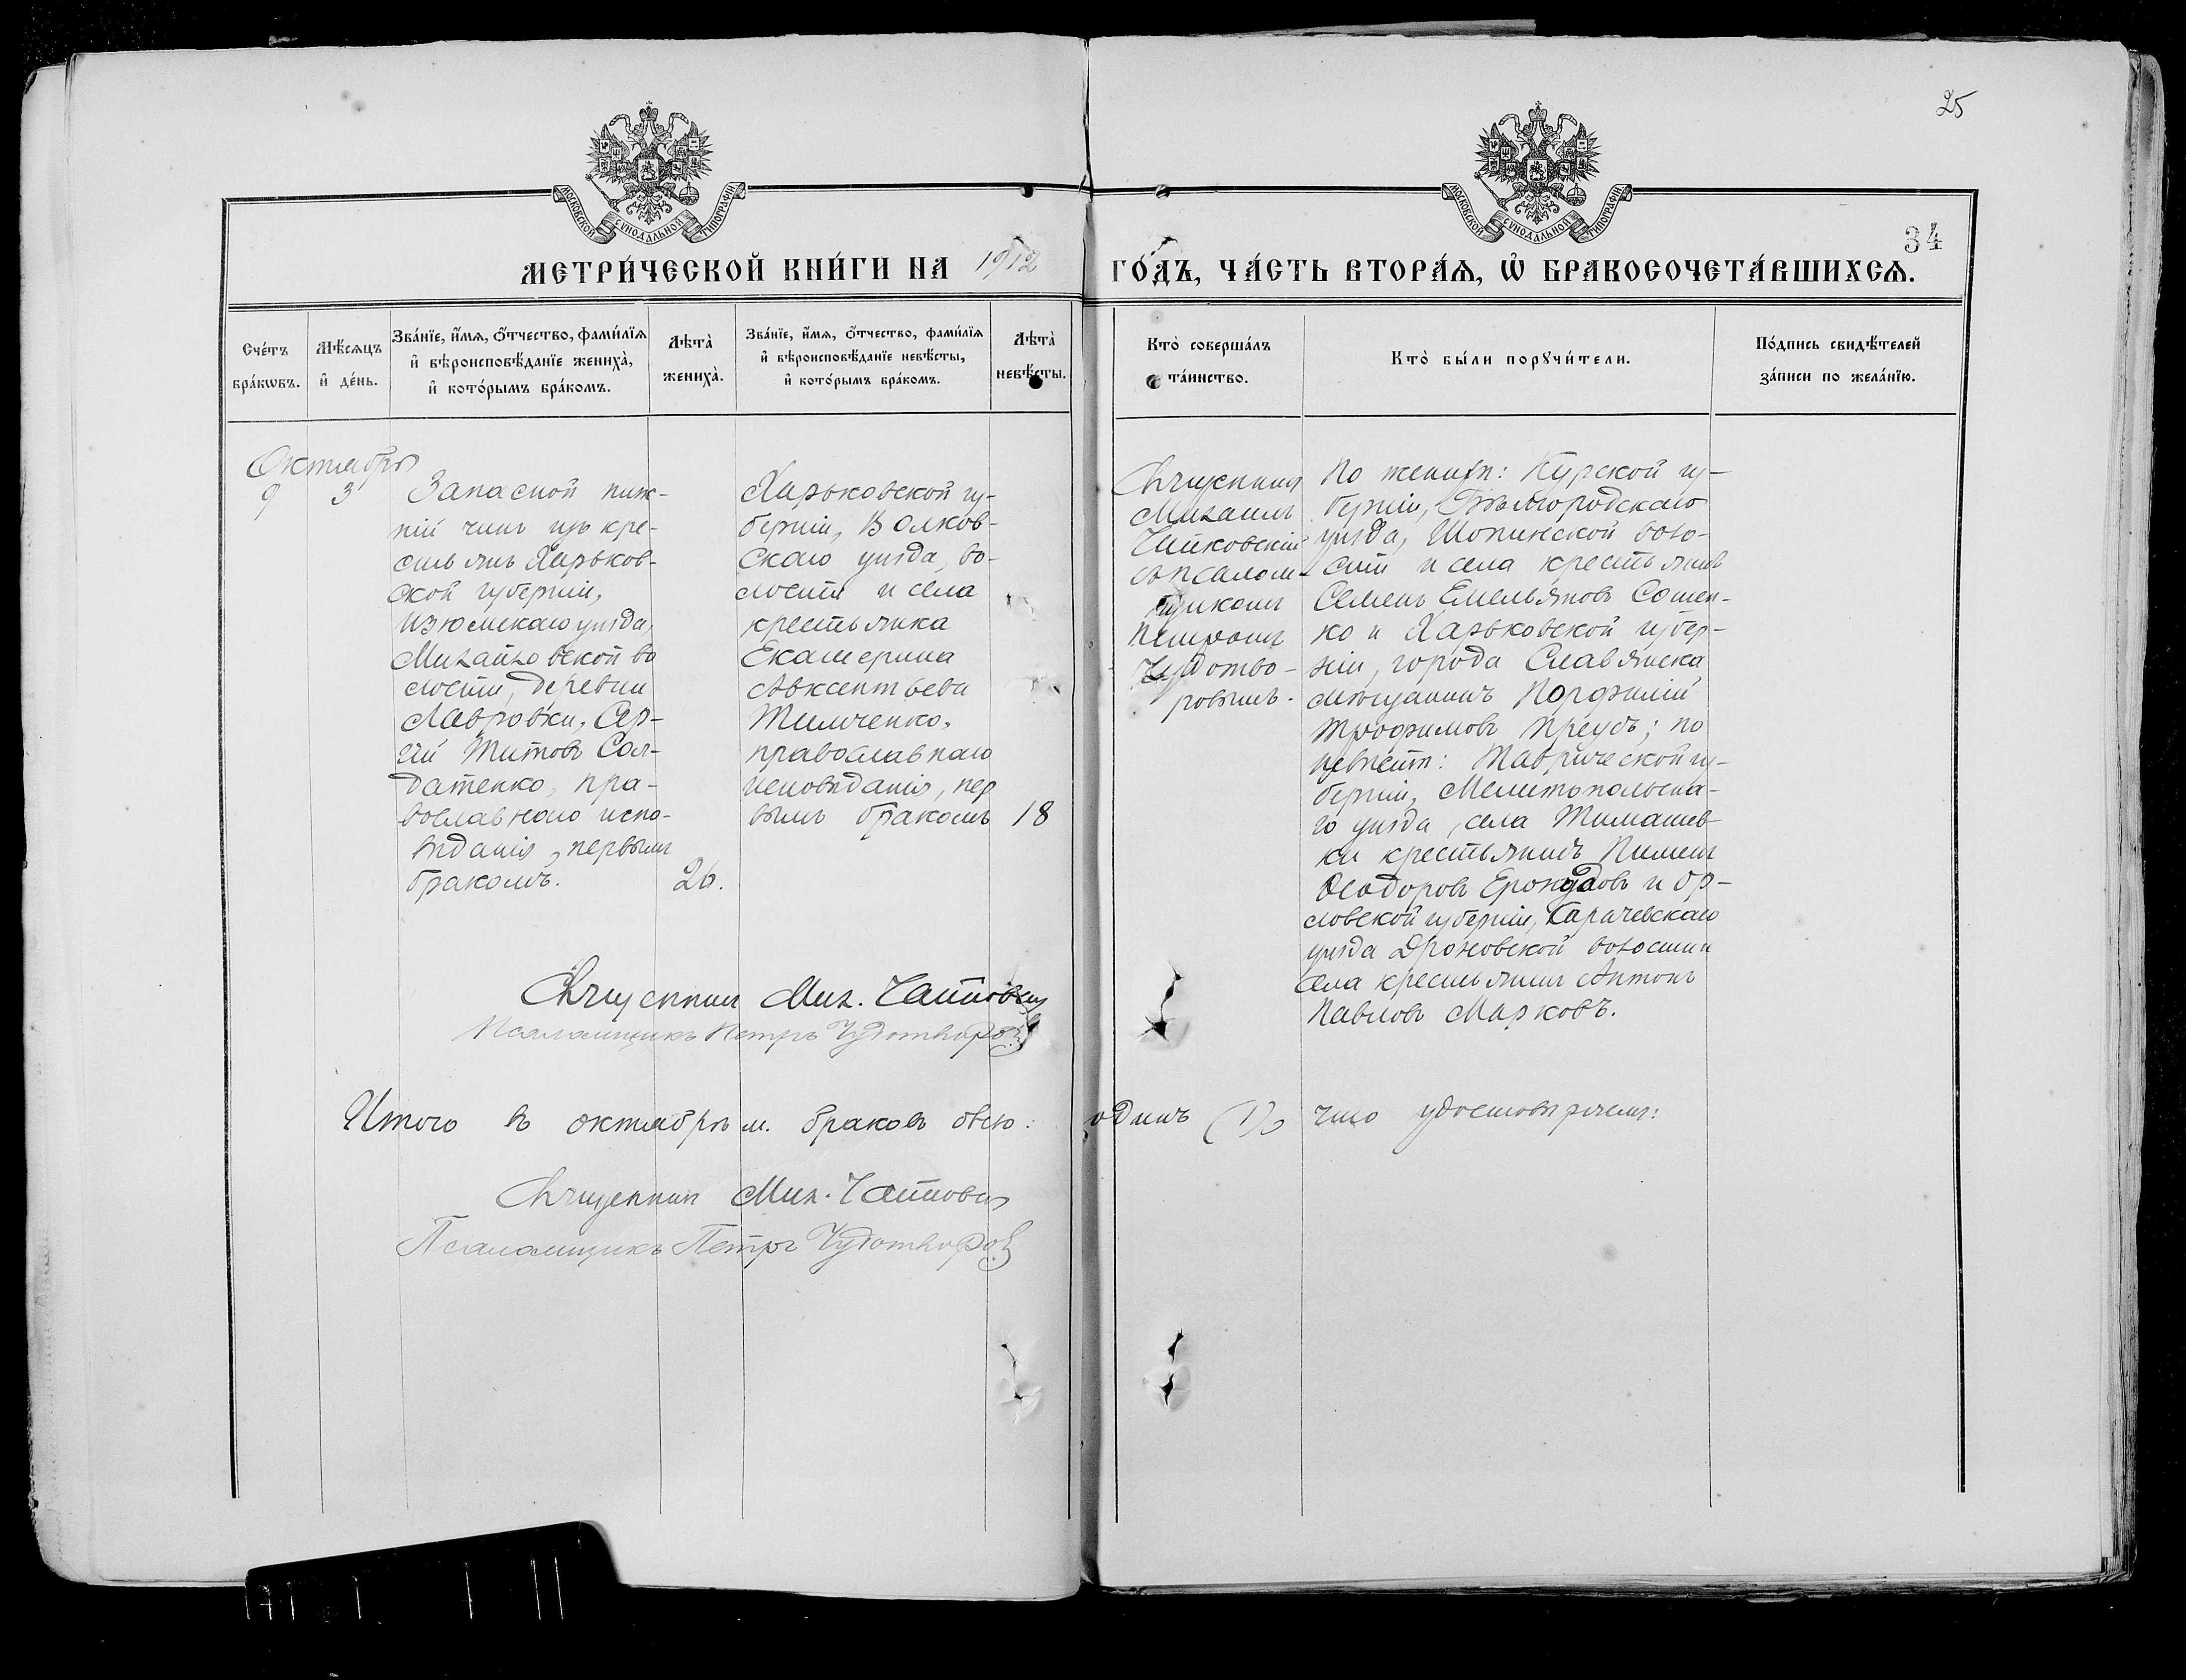 25
МОСКОВСКОЙ СѴНОДАЛЬНОЙ ТИПОГРАФІИ
МОСКОВСКОЙ СѴНОДАЛЬНОЙ ТИПОГРАФІИ
34
МЕТРИ́ЧЕСКОЙ КНИ́ГИ НА 1912
ГО́ДЪ, ЧА́СТЬ ВТОРА́Ѧ, Ѡ҆ БРАКОСОЧЕТА́ВШИХСѦ.
Сче́тъ
бра́кѡвъ.
Мѣ́сяцъ
и҆ де́нь.
Зва́нїе, и҆́мѧ, ѻ҆́тчество, фами́лїѧ
и҆ вѣроисповѣ́данїе жениха̀,
и҆ кото́рымъ бра́комъ.
Лѣта̀
жениха̀.
Зва́нїе, и҆́мѧ, ѻ҆́тчество, фами́лїѧ
и҆ вѣроисповѣ́данїе невѣ́сты,
и҆ кото́рымъ бра́комъ.
Лѣта̀
невѣ́сты.
Кто̀ соверша́лъ
та́инство.
Кто̀ бы́ли порꙋчи́тели.
По́дпись свидѣ́телей
за́писи по жела́нїю.
Октября
9 3
Запасной ниж-
ній чинъ изъ кре-
стьянъ Харьков-
ской губерніи,
Изюмскаго уѣзда,
Михайловской во
лости, деревни
Лавровки, Сер-
гѣй Титовъ Сол-
датенко, пра-
вославнаго испо-
вѣданія, первымъ
бракомъ.
26.
Харьковской гу-
берніи, Волков-
скаго уѣзда, во-
лости и села
крестьянка
Екатерина
Авксентьева
Тимченко,
православнаго
исповѣданія, пер
вымъ бракомъ
18
Священникъ
Михаилъ
Чайковскій
съ псалом-
щикомъ
Петромъ
Чудотво-
ровымъ.
По женихѣ: Курской гу-
берніи, Бѣлгородскаго
уѣзда, Шопинской воло-
сти и села крестьянинъ
Семенъ Емельяновъ Сошен-
ко и Харьковской губер-
ніи, города Славянска
мѣщанинъ Порфирій
Трофимовъ Преусъ; по
невѣстѣ: Таврической гу-
берніи, Мелитопольска-
го уѣзда, села Тимашев-
ки крестьянинъ Пименъ
Ѳеодоровъ и Ор-
ловской губерніи, Карачевскаго
уѣзда Дроновской волости и
села крестьянинъ Антонъ
Павловъ Марковъ.
Священникъ Мих. Чайковскій
Псаломщикъ Петръ Чудотворовъ
Итого въ октябрѣ м. браковъ было: одинъ (1), что удостовѣряемъ:
Священникъ Мих. Чайковскій
Псаломщикъ Петръ Чудотворовъ